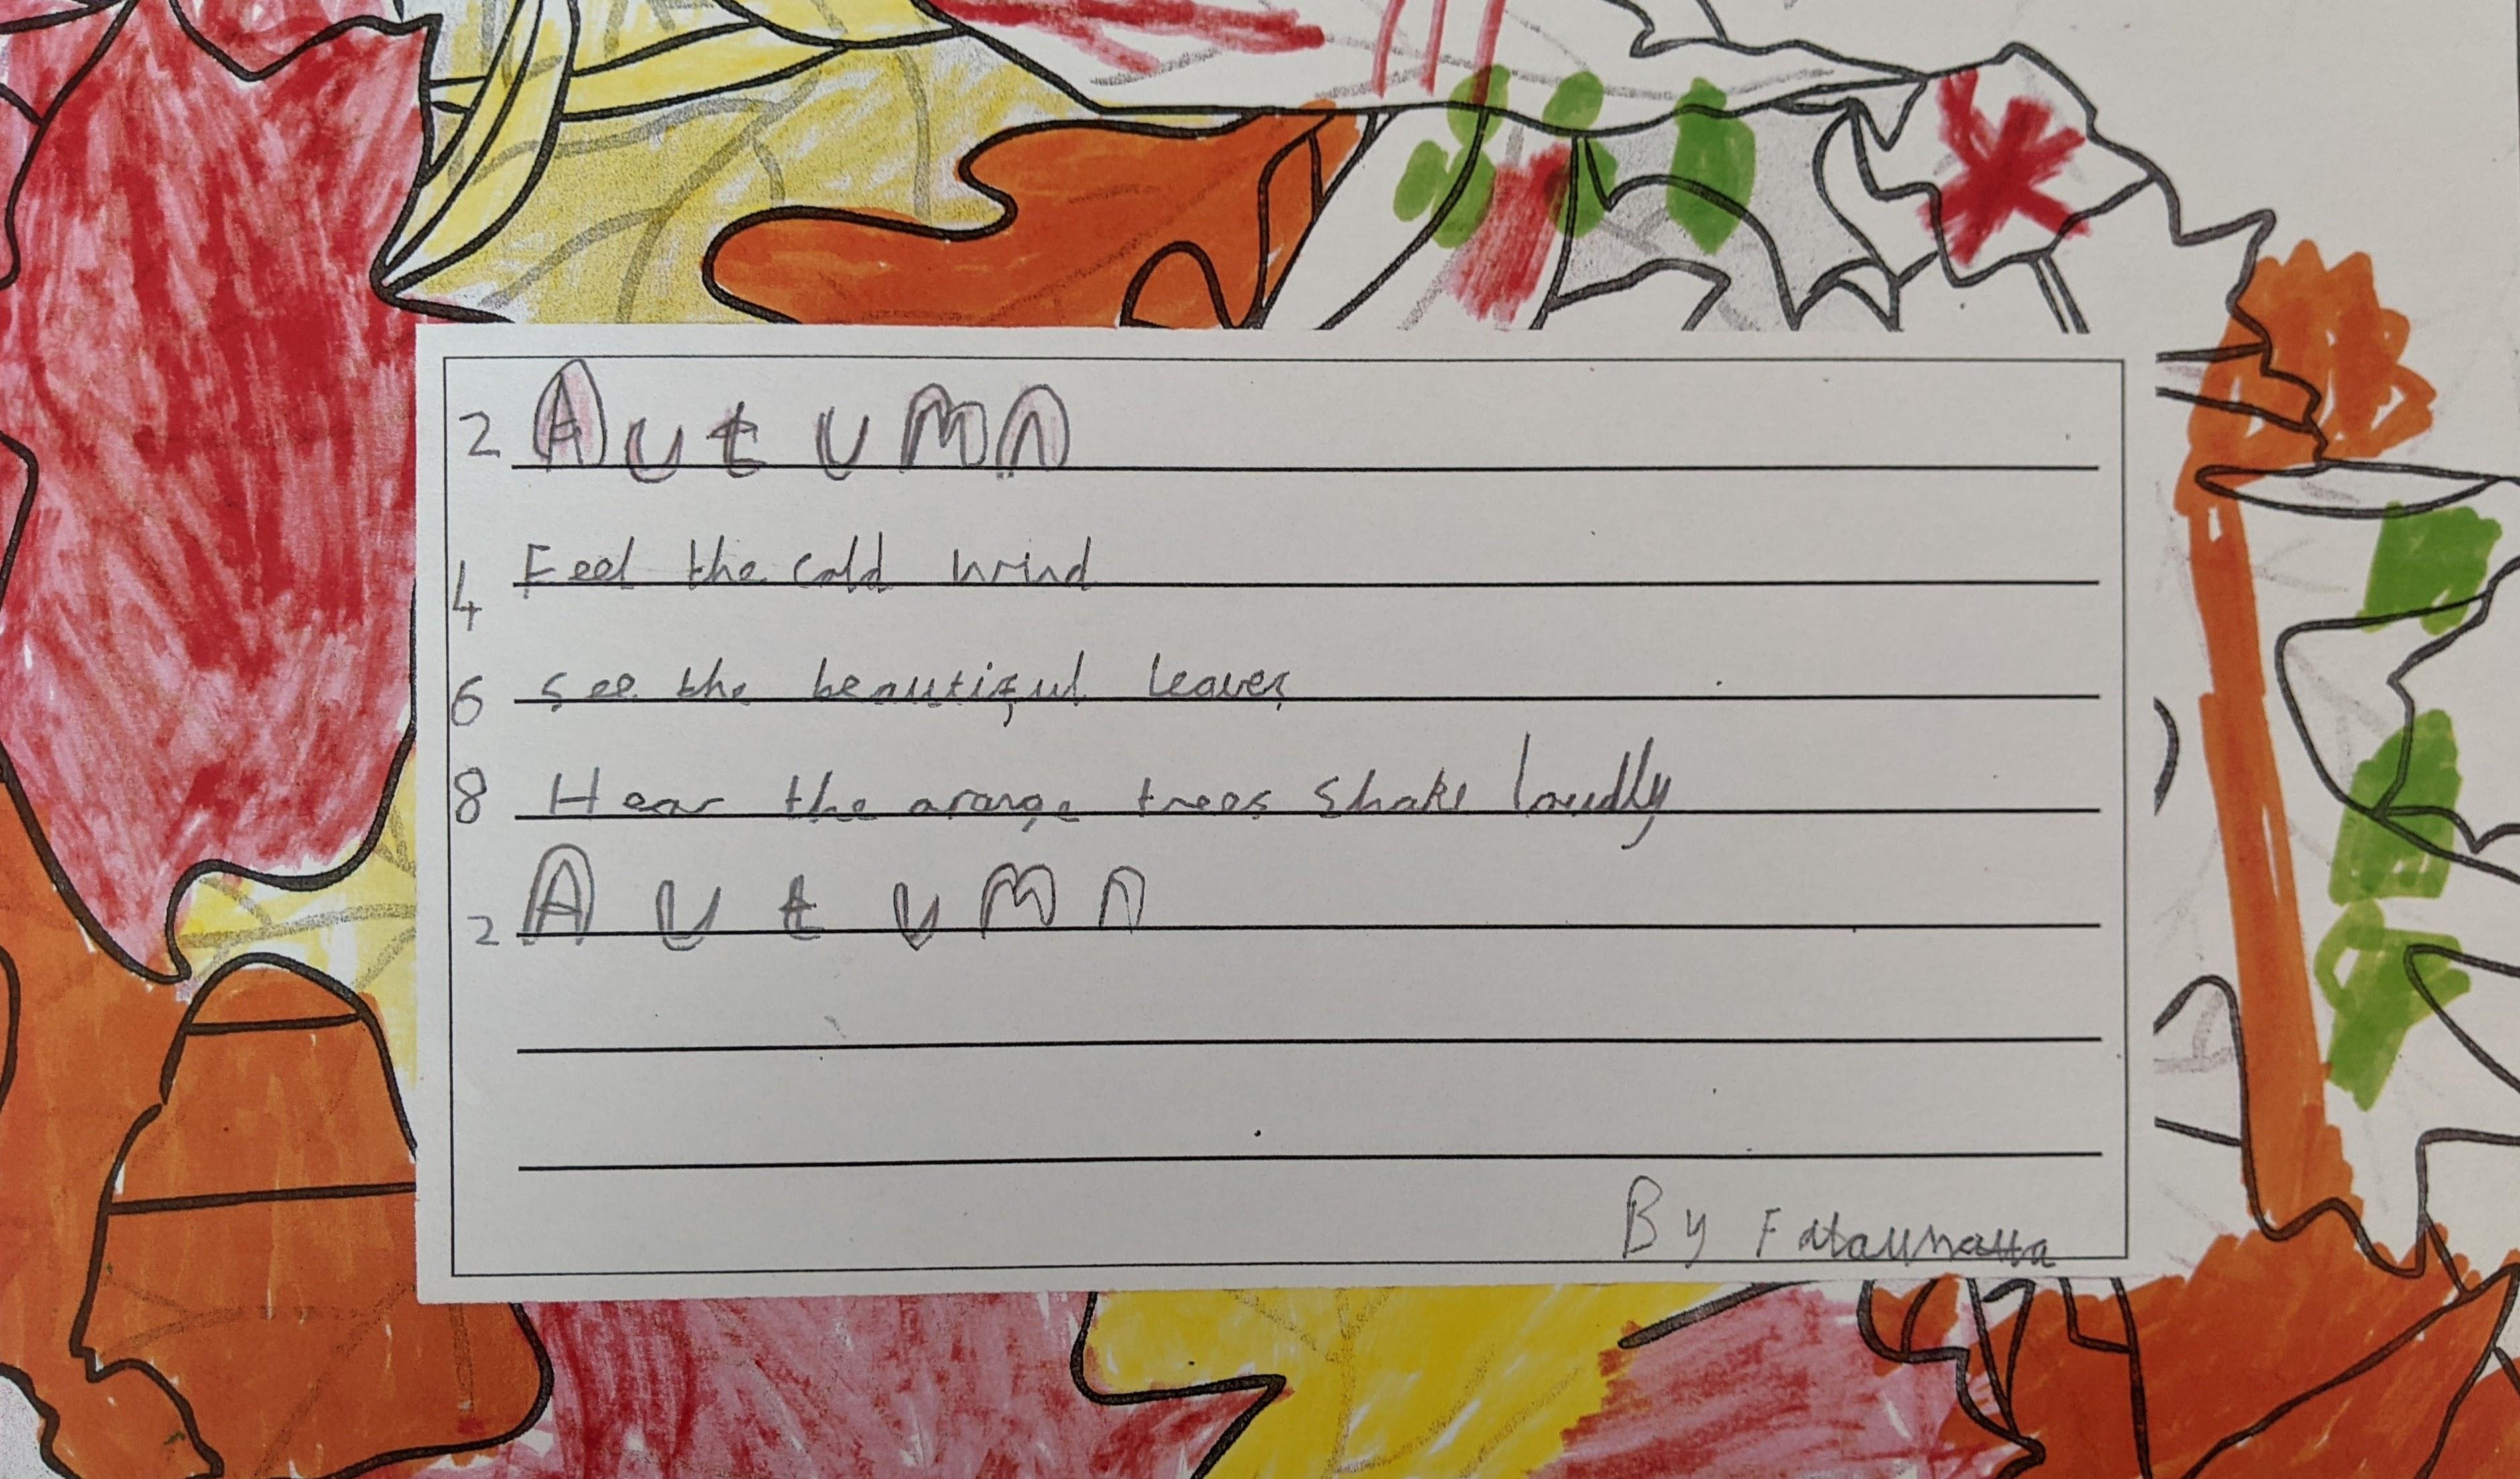 2 Autumn
4 Feel the cold wind
6 see the beautiful leaves
8 Hear the orange trees shake loudly
2 Autumn
By